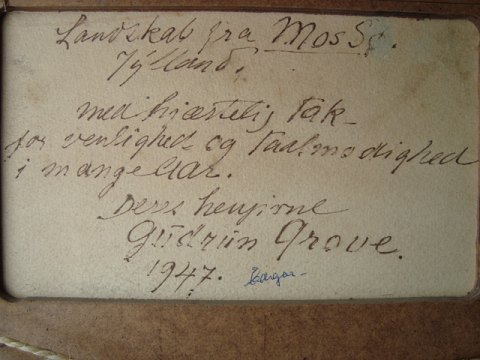 Landskab fra Mos Sø.
Jylland.
med hiærtelig Tak
for venlighed og Taalmodighed
i mange Aar.
Deres hengivne
Gudrun Grove.
1947.